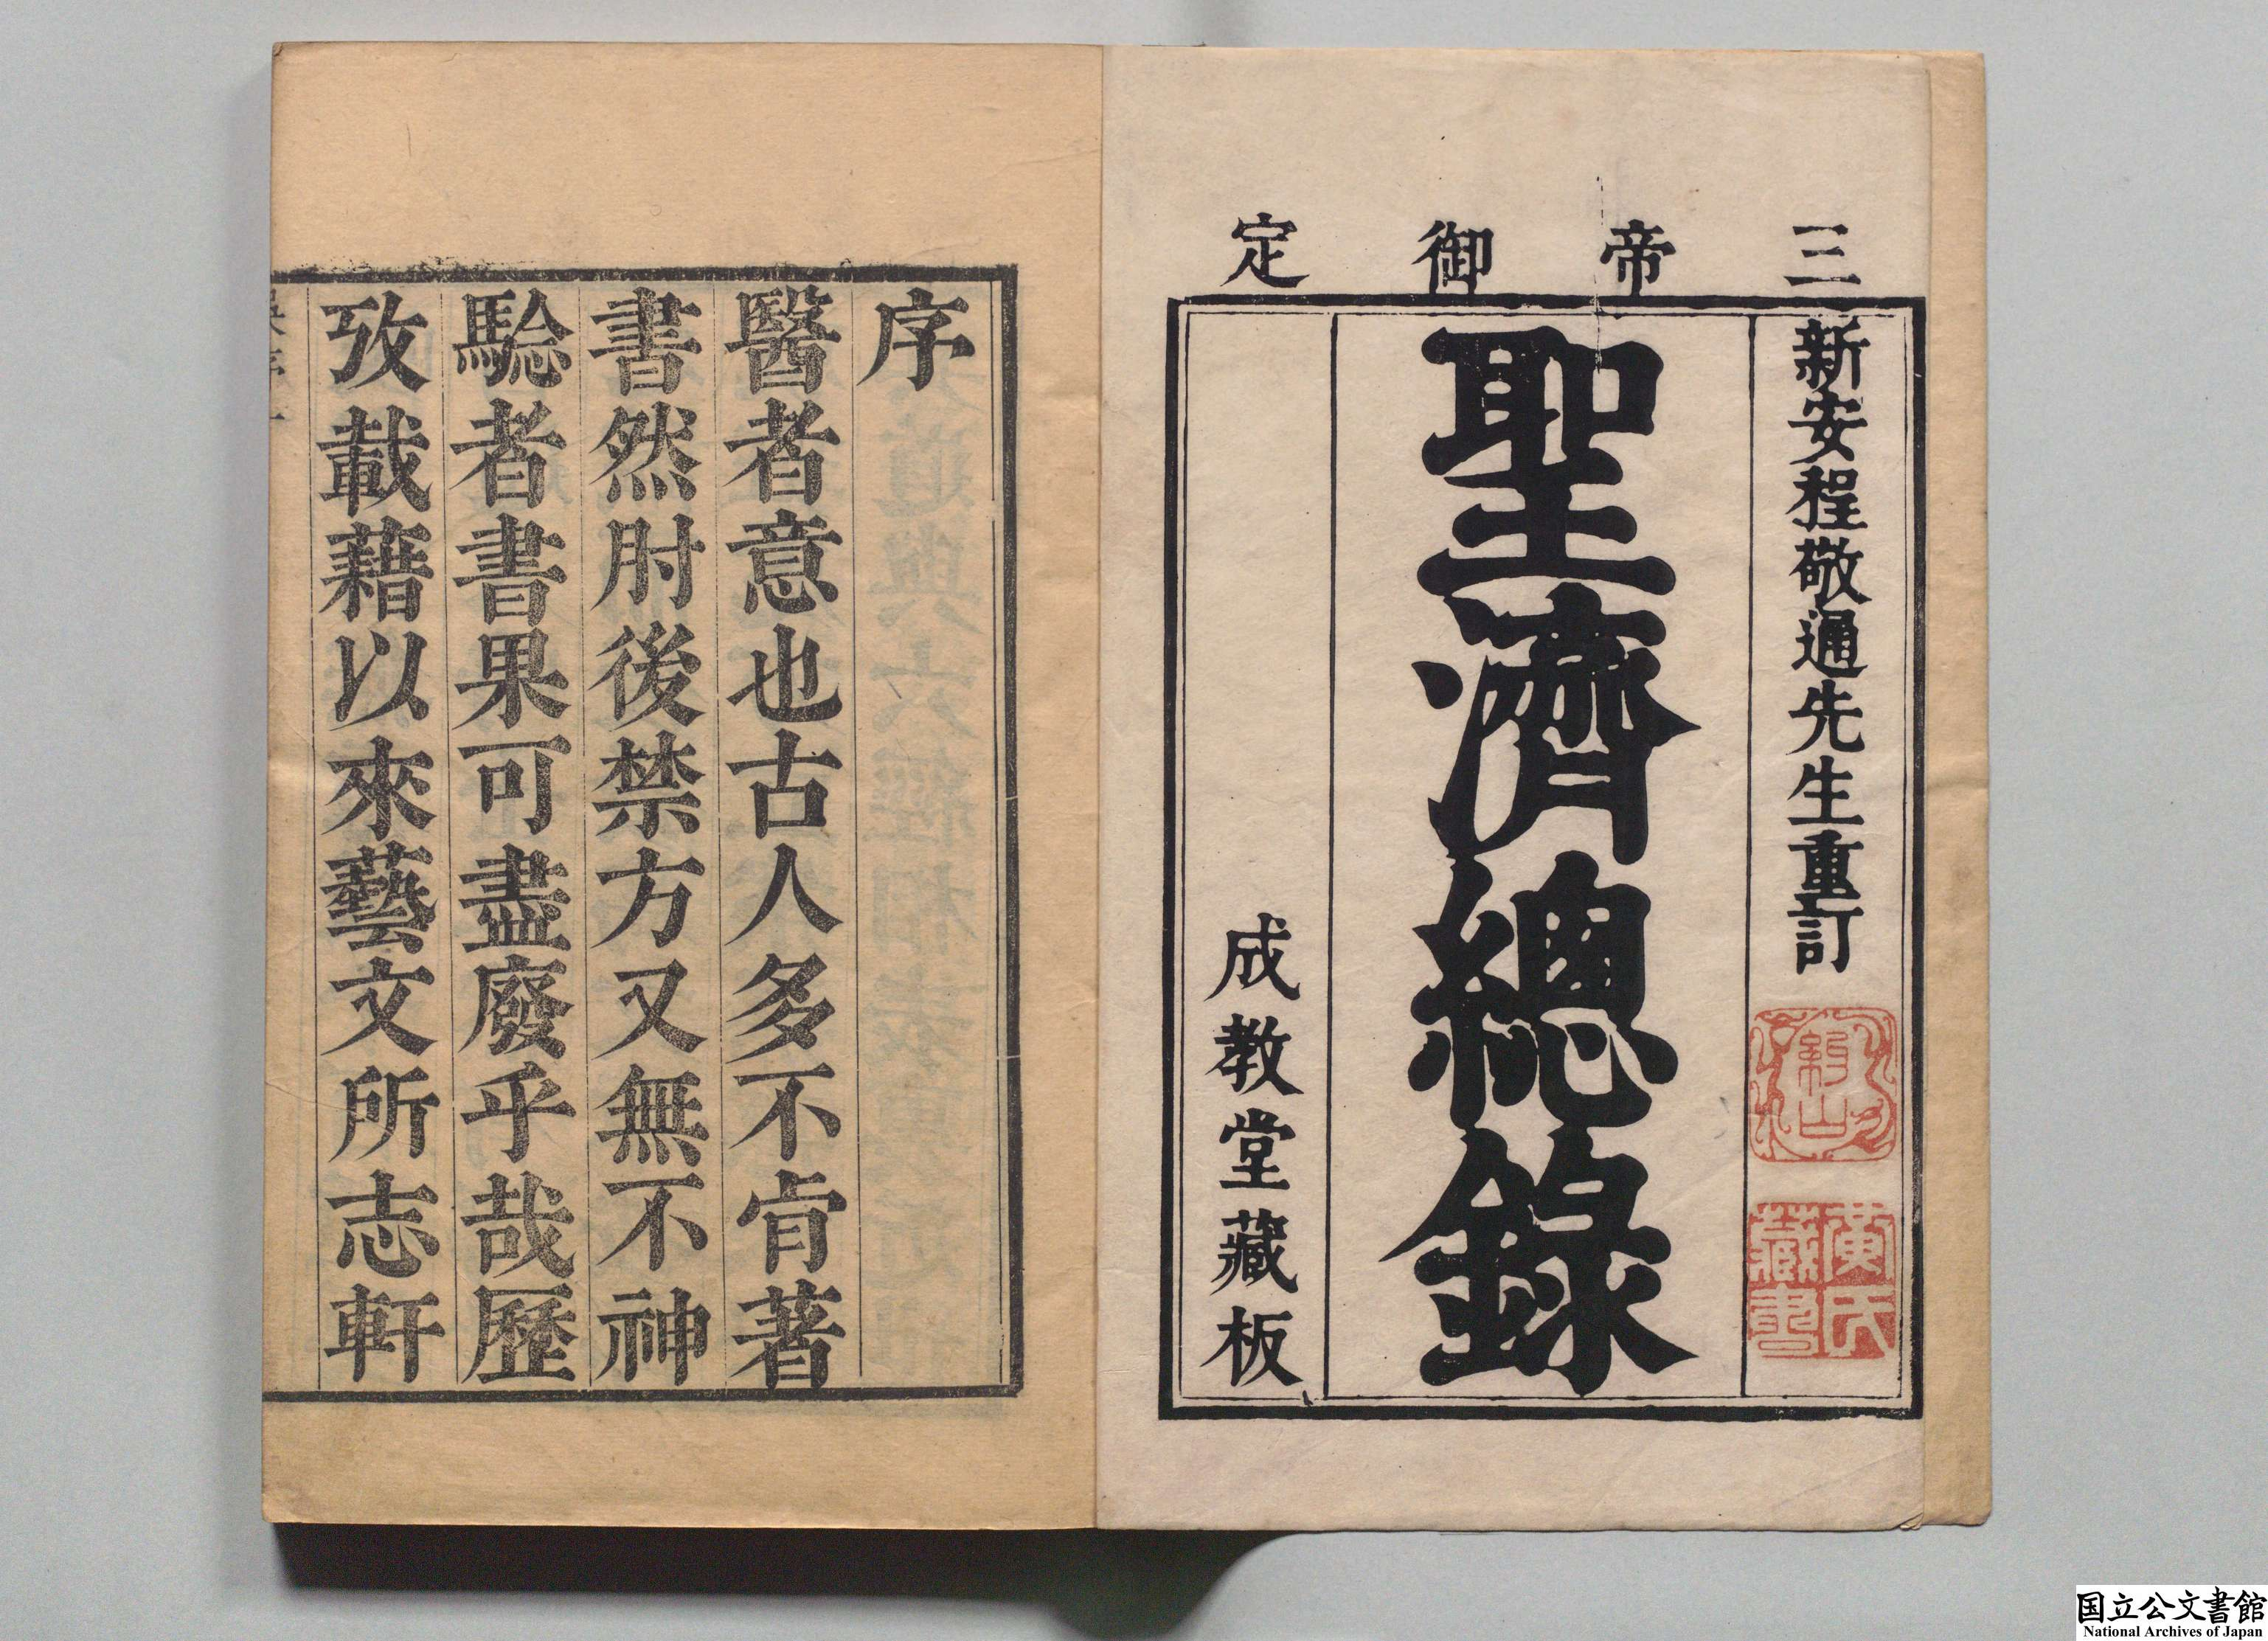 三帝御定
新安程敬通先生重訂
聖濟總錄
成教堂藏板
黃氏藏書
序
醫者意也古人多不肯著
書然肘後禁方又無不神
騐者書果可盡廢乎哉歷
攷載藉以來藝文所志軒
国立公文書館
National Archives of Japan